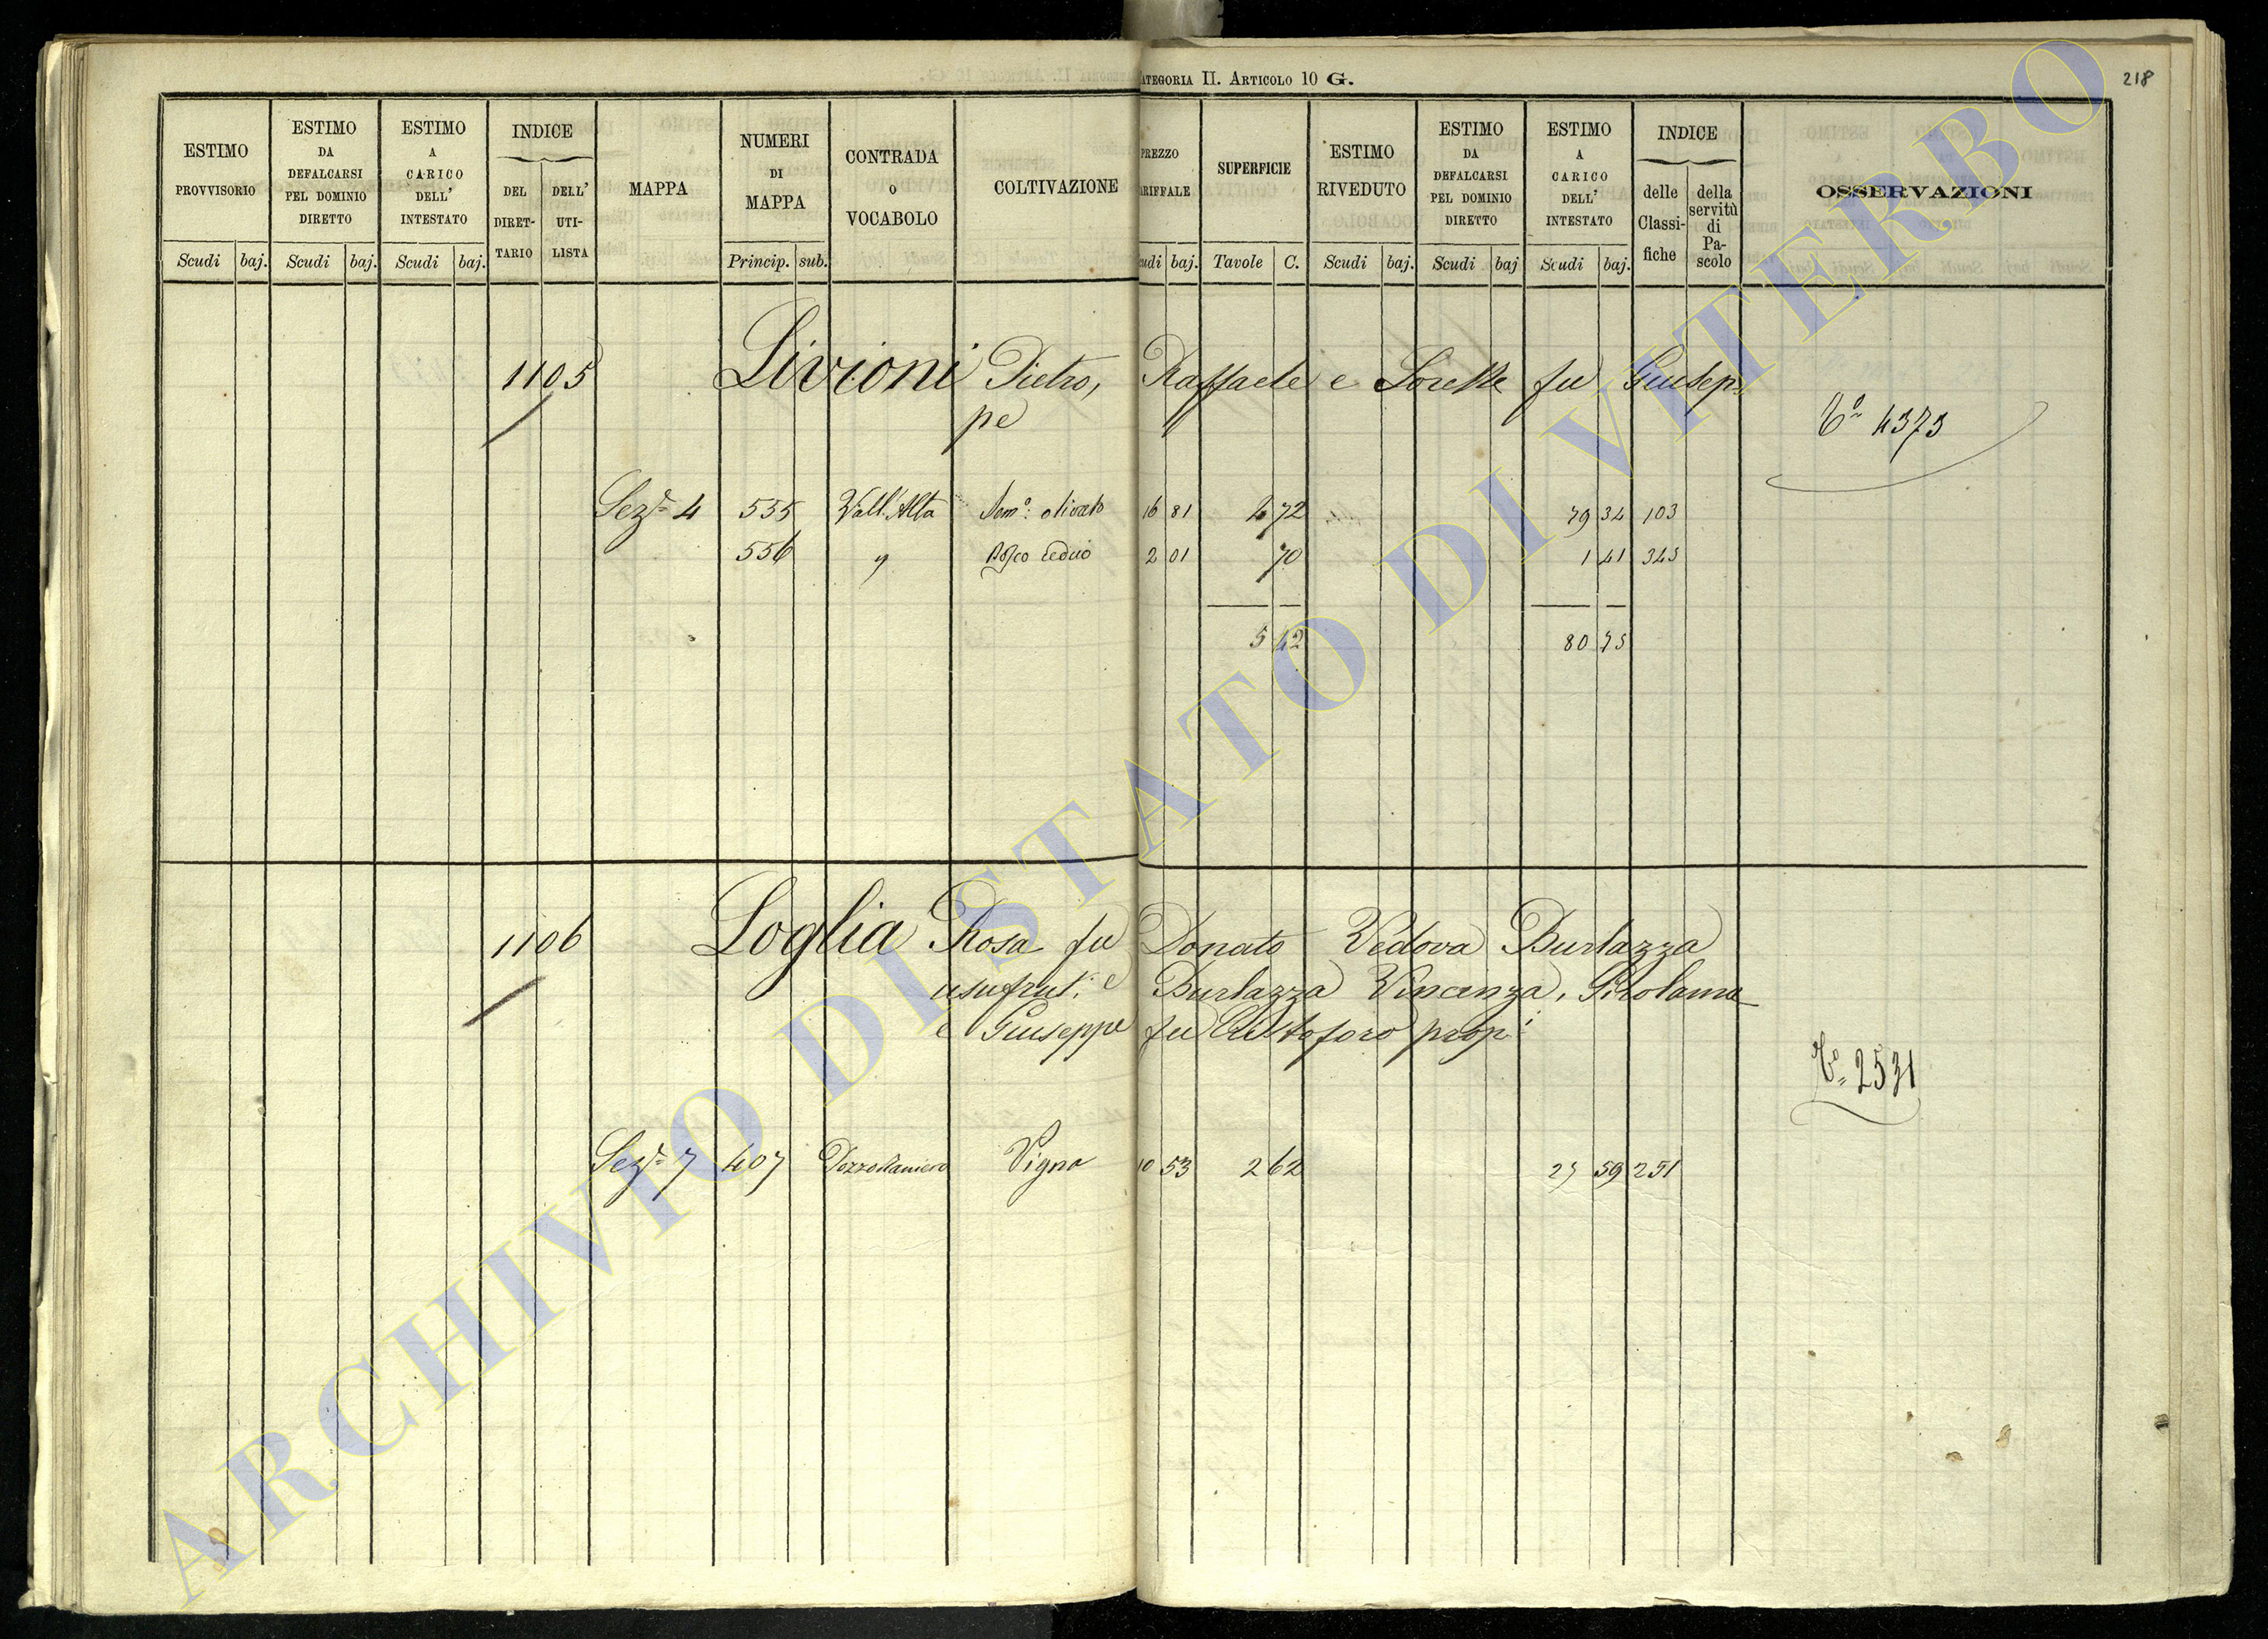 ATEGORIA II. ARTICOLO 10 G.
218
ESTIMO PROVVISORIO
ESTIMO DA DEFALCARSI PEL DOMINIO DIRETTO
ESTIMO A CARICO DELL' INTESTATO
INDICE
DEL DIRET-TARIO
DELL' UTI-LISTA
MAPPA
NUMERI DI MAPPA
CONTRADA O VOCABOLO
COLTIVAZIONE
PREZZO
ARIFFALE
SUPERFICIE
ESTIMO RIVEDUTO
ESTIMO DA DEFALCARSI PEL DOMINIO DIRETTO
ESTIMO A CARICO DELL' INTESTATO
INDICE
delle Classi-fiche
della servitù di Pa-scolo
OSSERVAZIONI
Scudi baj. Scudi baj. Scudi baj. Princip. sub. udi baj. Tavole C. Scudi baj. Scudi baj Scudi baj.
1105 Livioni Pietro, Raffaele e fu Giusep
pe
4373
Sez.e 4 555 Vall'Alta Sem.o olivato 16 81 4 72 79 34 103
556 " Bosco ceduo 2 01 70 1 41 345
5 42 80 75
1106 Loglia Rosa fu Donato Vedova Burlazza
usufrut. e Burlazza Vincenza, Girolama
e Giuseppe fu Cristoforo prop.i
2531
Sez.e 7 407 Vigna 10 53 2 62 27 59 251
ARCHIVIO DI STATO DI VITERBO